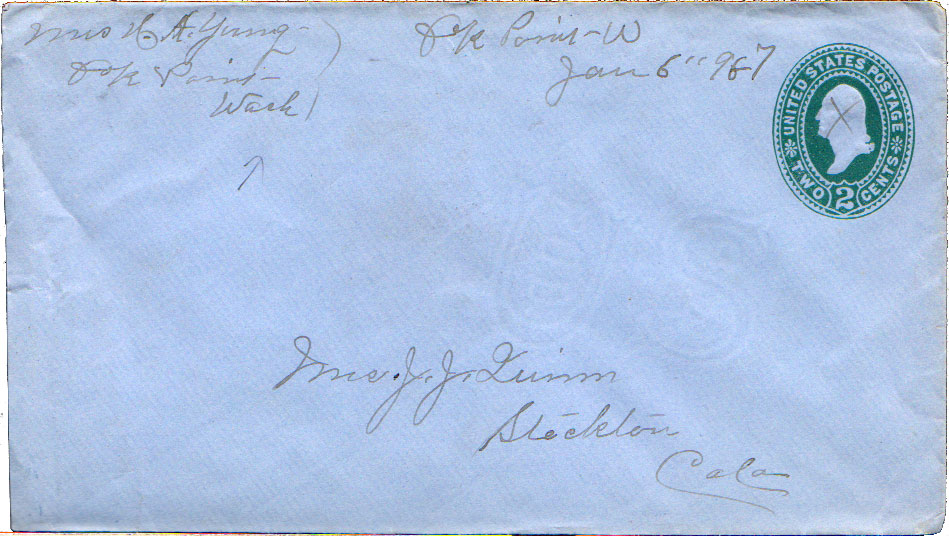 Mrs H. A. Yung
Point
Wash
Point W
Jan 6" 
UNITED STATES POSTAGE
TWO 2 CENTS
X
Mrs. J. J. Quinn
Stockton
Cala